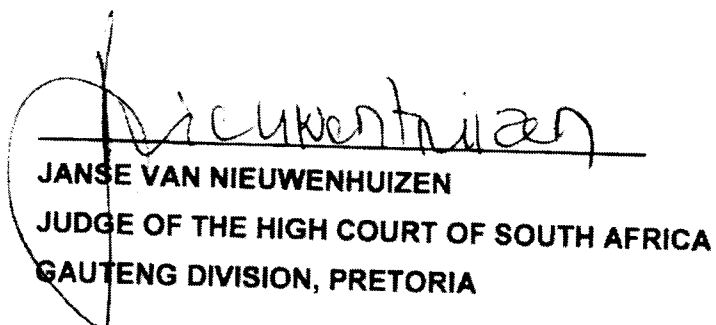 Nieuwenhuizen
JANSE VAN NIEUWENHUIZEN
JUDGE OF THE HIGH COURT OF SOUTH AFRICA
GAUTENG DIVISION, PRETORIA